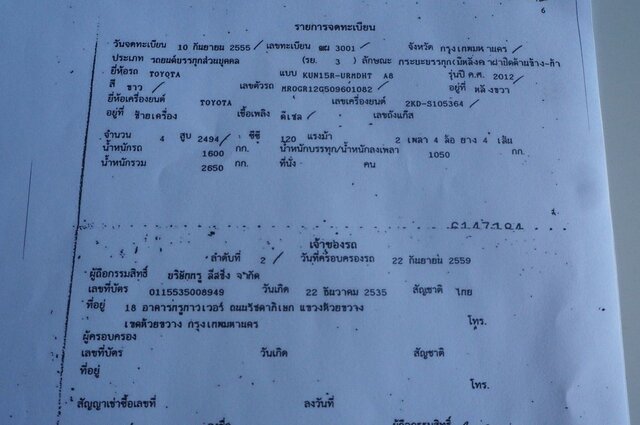 6
รายการจดทะเบียน
วันจดทะเบียน 10 กันยายน 2555 เลขทะเบียน 3001 จังหวัด กรุงเทพมหานคร
ประเภท รถยนต์บรรทุกส่วนบุคคล (รย. 3 ) ลักษณะ กระบะบรรทุก(มีหลังคา
ยี่ห้อรถ TOYOTA แบบ KUN15R-URMDHT A8 รุ่นปี ค.ศ. 2012
สี ขาว เลขตัวรถ MR0GR12G509601082 อยู่ที่ หลังขวา
ยี่ห้อเครื่องยนต์ TOYOTA เลขเครื่องยนต์ 2KD-S105364
อยู่ที่ ซ้ายเครื่อง เชื้อเพลิง ดีเซล เลขถังแก๊ส
จำนวน 4 สูบ 2494 ซีซี 120 แรงม้า 2 เพลา 4 ล้อ ยาง 4 เส้น
น้ำหนักรถ 1600 กก. น้ำหนักบรรทุก/น้ำหนักลงเพลา 1050 กก.
น้ำหนักรวม 2650 กก. ที่นั่ง คน
6147184
เจ้าของรถ
ลำดับที่ 2 วันที่ครอบครองรถ 22 กันยายน 2559
ผู้ถือกรรมสิทธิ์ บริษัทกรุ๊ ลีสซิ่ง จำกัด
เลขที่บัตร 0115535008949 วันเกิด 22 ธันวาคม 2535 สัญชาติ ไทย
ที่อยู่ 18 อาคาร ถนนรัชดาภิเษก แขวงห้วยขวาง
เขตห้วยขวาง กรุงเทพมหานคร โทร.
ผู้ครอบครอง
เลขที่บัตร วันเกิด สัญชาติ
ที่อยู่
โทร.
สัญญาเช่าซื้อเลขที่ ลงวันที่
ผู้ถือกรรมสิทธิ์